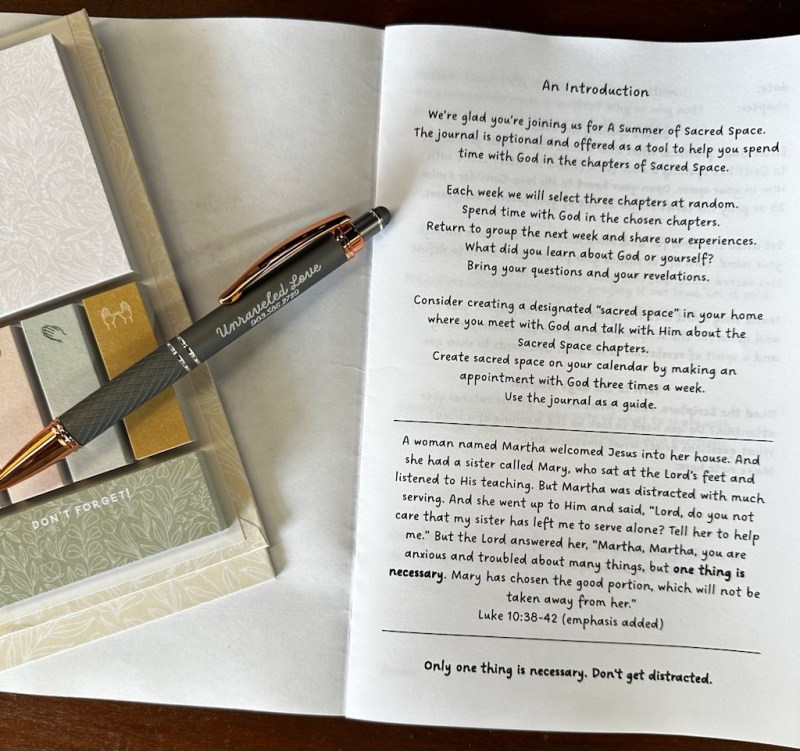 An Introduction
We're glad you're joining us for A Summer of Sacred Space.
The journal is optional and offered as a tool to help you spend
time with God in the chapters of Sacred Space.
Each week we will select three chapters at random.
Spend time with God in the chosen chapters.
Return to group the next week and share our experiences.
What did you learn about God or yourself?
Bring your questions and your revelations.
Consider creating a designated "sacred space" in your home
where you meet with God and talk with Him about the
Sacred Space chapters.
Create sacred space on your calendar by making an
appointment with God three times a week.
Use the journal as a guide.
A woman named Martha welcomed Jesus into her house. And
she had a sister called Mary, who sat at the Lord's feet and
listened to His teaching. But Martha was distracted with much
serving. And she went up to Him and said, "Lord, do you not
care that my sister has left me to serve alone? Tell her to help
me." But the Lord answered her, "Martha, Martha, you are
anxious and troubled about many things, but one thing is
necessary. Mary has chosen the good portion, which will not be
taken away from her."
Luke 10:38-42 (emphasis added)
Only one thing is necessary. Don't get distracted.
Unraveled Love
DON'T FORGET!